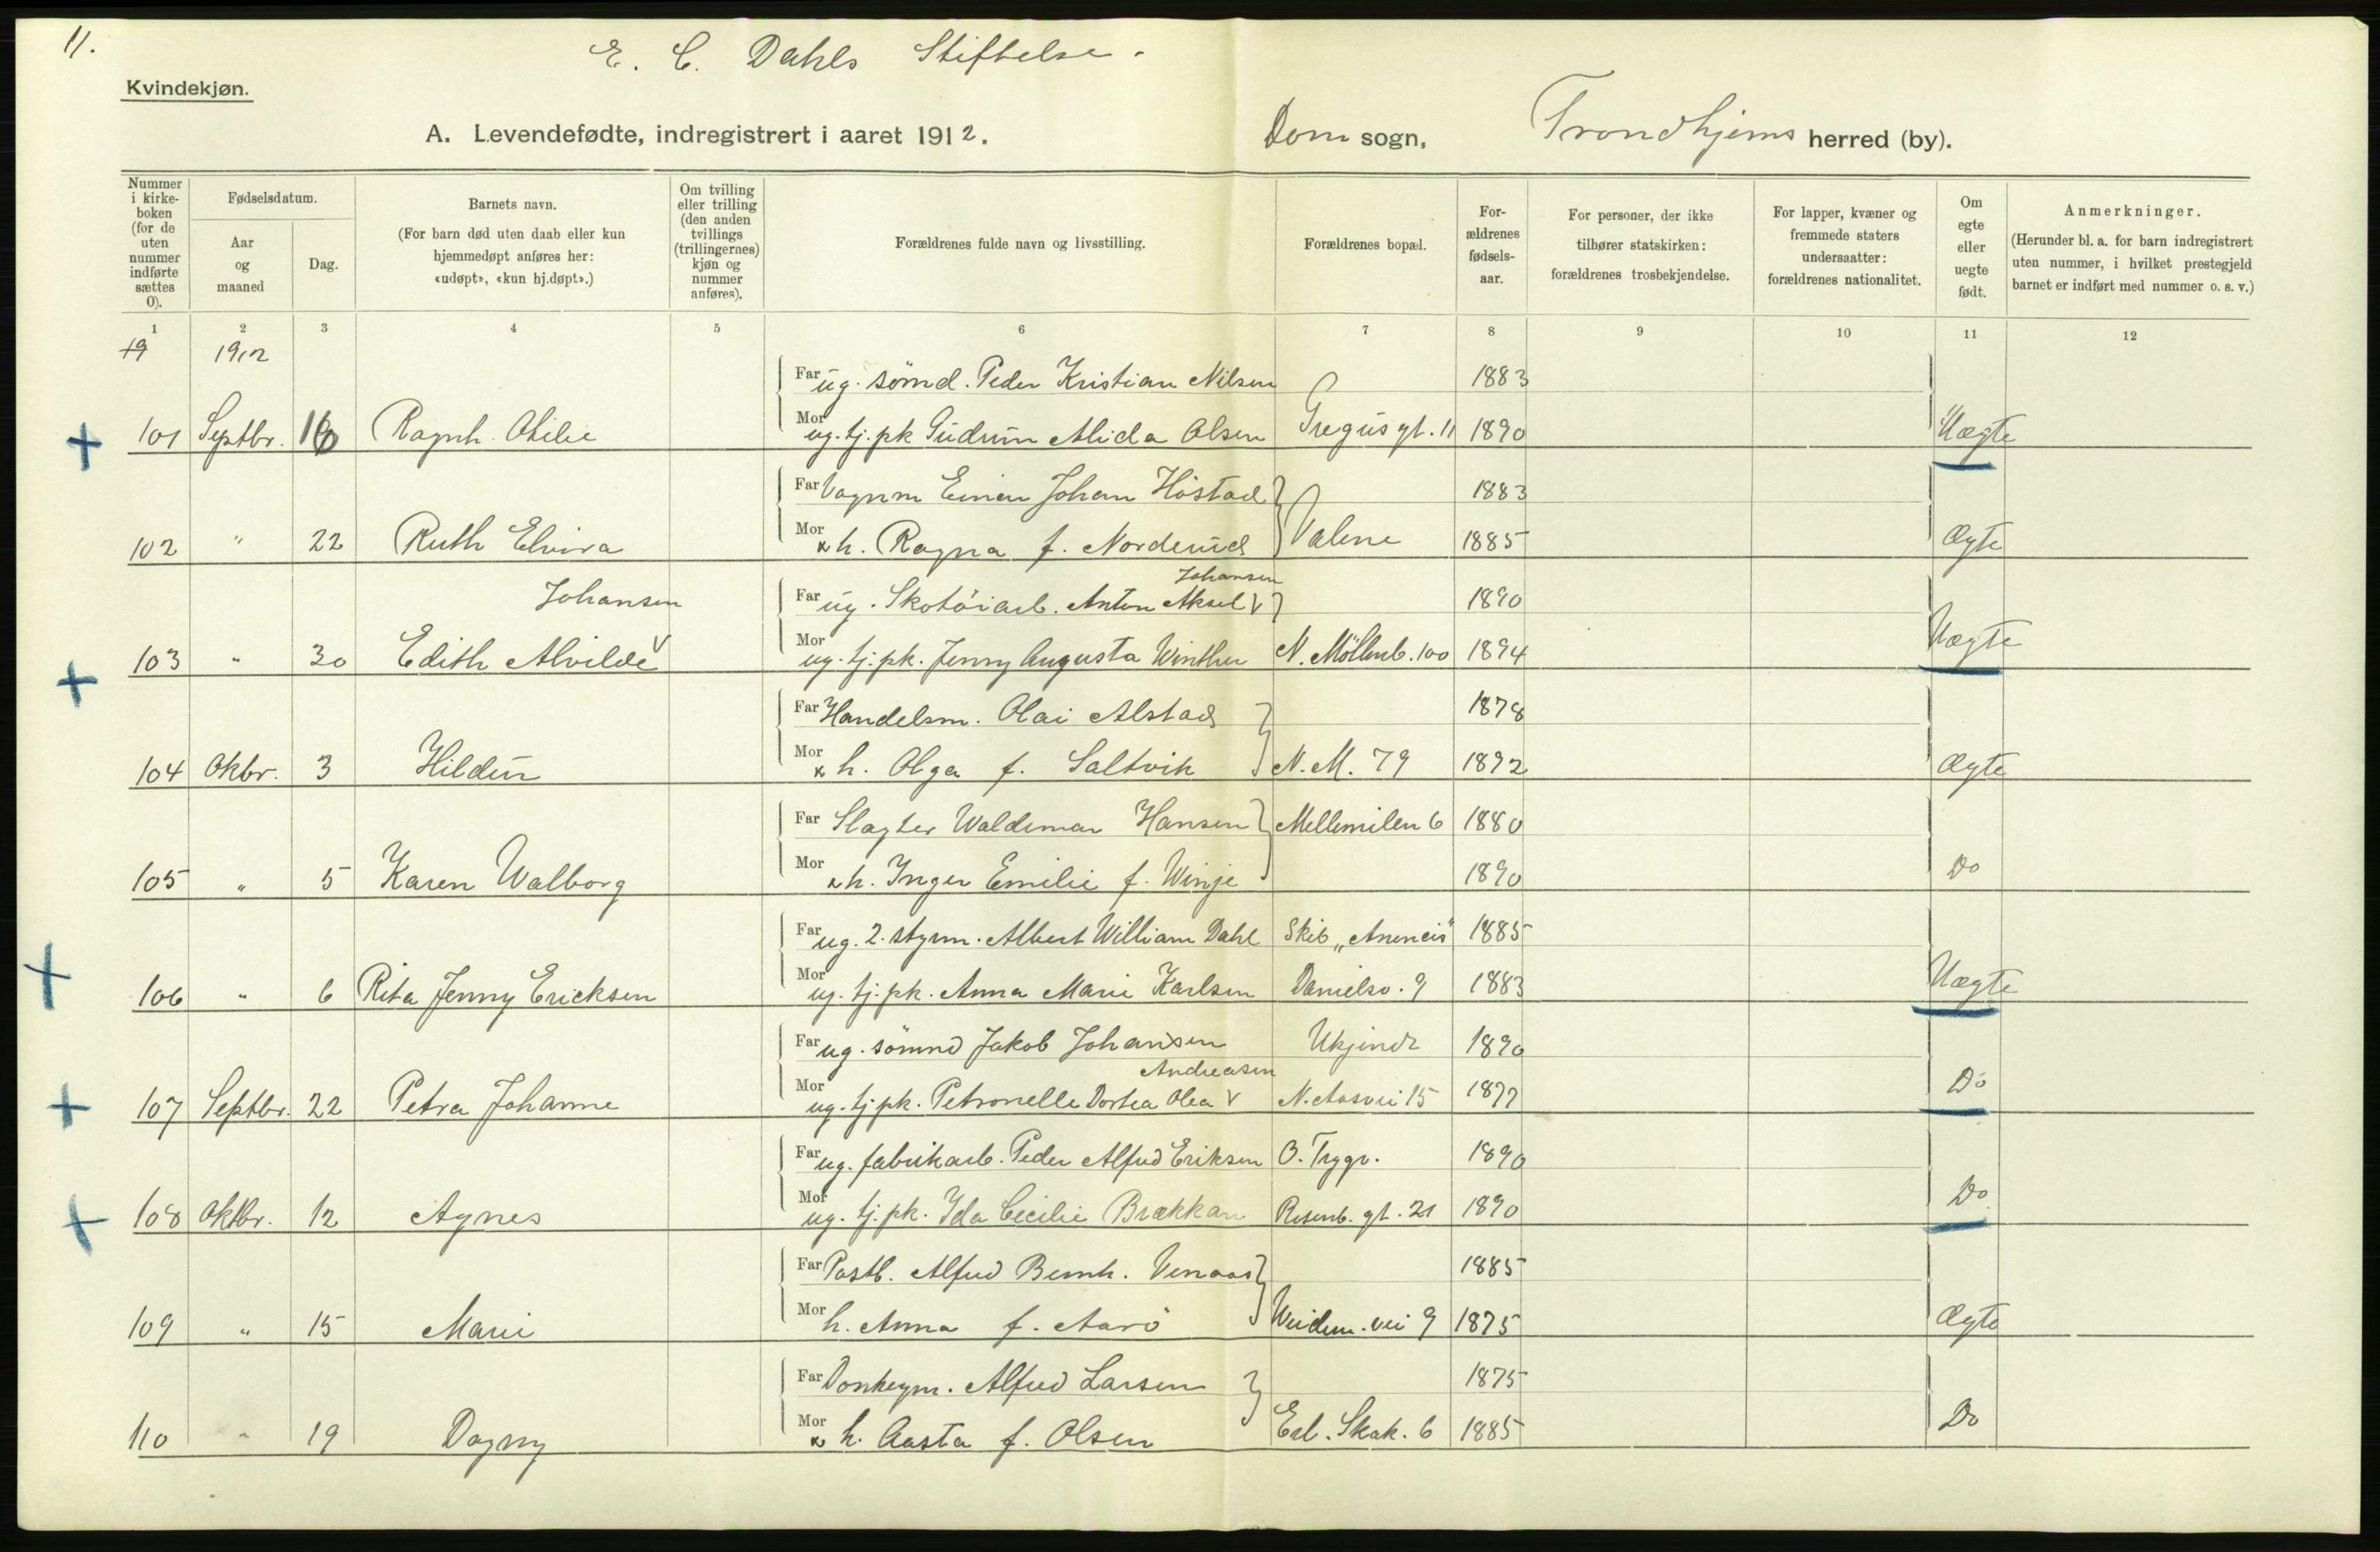 11.
E. C. Dahls Stiftelse.
Kvindekjøn.
A. Levendefødte, indregistrert i aaret 1912.
Dom sogn, Trondhjems herred (by).
Nummer i kirke-boken (for de uten nummer indførte sættes 0).
Fødselsdatum.
Aar og maaned
Dag.
Barnets navn.
(For barn død uten daab eller kun hjemmedøpt anføres her: «udøpt», «kun hj.døpt».)
Om tvilling eller trilling (den anden tvillings (trillingernes) kjøn og nummer anføres).
Forældrenes fulde navn og livsstilling.
Forældrenes bopæl.
For-ældrenes fødsels-aar.
For personer, der ikke tilhører statskirken: forældrenes trosbekjendelse.
For lapper, kvæner og fremmede staters undersaatter: forældrenes nationalitet.
Om egte eller uegte født.
Anmerkninger.
(Herunder bl. a. for barn indregistrert uten nummer, i hvilket prestegjeld barnet er indført med nummer o. s. v.)
1 2 3 4 5 6 7 8 9 10 11 12
19 1912
Far ug. sömd. Peder Kristian Nilsen 1883
101 Septbr. 16 Ragnh. Otilie Mor ug. tj. pk Gudrun Alida Olsen gt. 11 1890 Uægte
Far Vognm Einar Johan Höstad 1883
102 " 22 Ruth Elvira Mor h. Ragna f. Norderud 1885 Ægte
Johansen Johansen
Far ug. Skotöiarb. Anton Aksel V 1890
103 " 30 Edith Alvilde V Mor ug. tj. pk. Jenny Augusta Winther N. Möllenb. 100 1894 Uægte
Far Handelsm. Olai Alstad 1878
104 Okbr. 3 Hildur Mor h. Olga f. Saltvik N. M. 79 1892 Ægte
Far Slagter Waldemar Hansen Mellemilen 6 1880
105 " 5 Karen Walborg Mor h. Inger Emilie f. Winje 1890 Do
Far ug. 2. styrm. Albert William Dahl Skib 1885
106 " 6 Rita Jenny Ericksen Mor ug. tj. pk. Anna Marie Karlsen Danielsv. 9 1883 Uægte
Far ug. sömnd Jakob Johansen Ukjendt 1890
Andreasen
107 Septbr. 22 Petra Johanne Mor ug. tj. pk. Petronelle Dortea Olea V N. Aasvei 15 1877 Do
Far ug. fabrikarb. Peder Alfred Eriksen O. Trygv. 1890
108 Oktbr. 12 Agnes Mor ug. tj. pk. Ida Cecilie Brækkan Rosenb. gt. 21 1890 Do
Far Postb. Alfred Bernh. Venaas 1885
109 " 15 Marie Mor h. Anna f. Aarö Weidem. vei 9 1875 Ægte
Far Donkeym. Alfred Larsen 1875
110 " 19 Dagny Mor h. Aasta f. Olsen Erl. Skak. 6 1885 Do